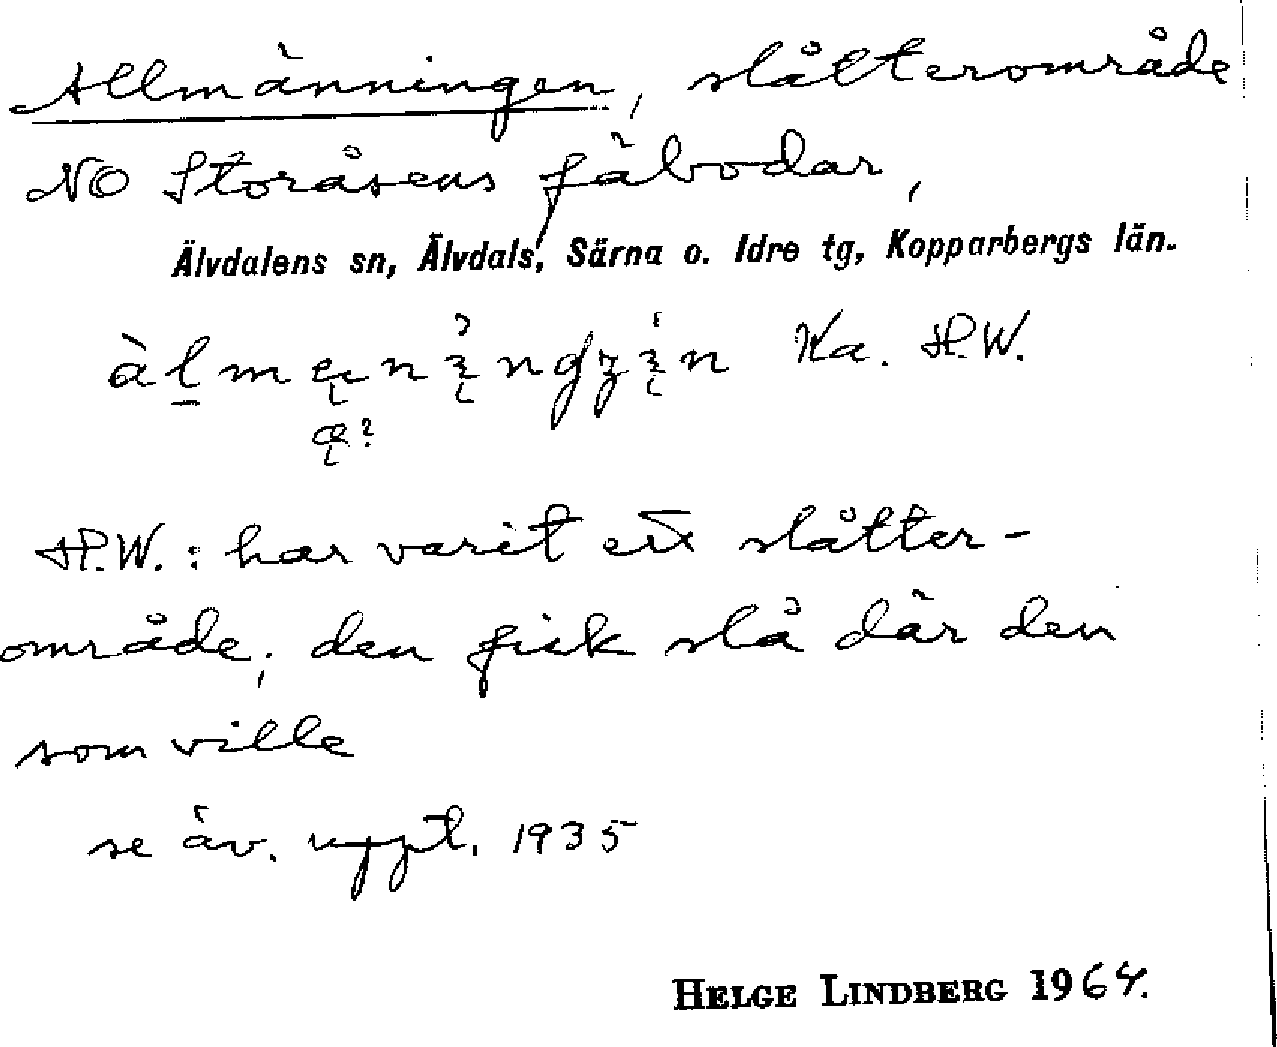 Allmänningen, slåtterområde
NO Storåsens fäbodar,
Älvdalens sn, Älvdals, Särna o. Idre tg, Kopparbergs län.
Ka. H.W.
H.W.: har varit ett slåtter-
område; den fick slå där den
som ville
se äv. uppt. 1935
HELGE LINDBERG 1964.